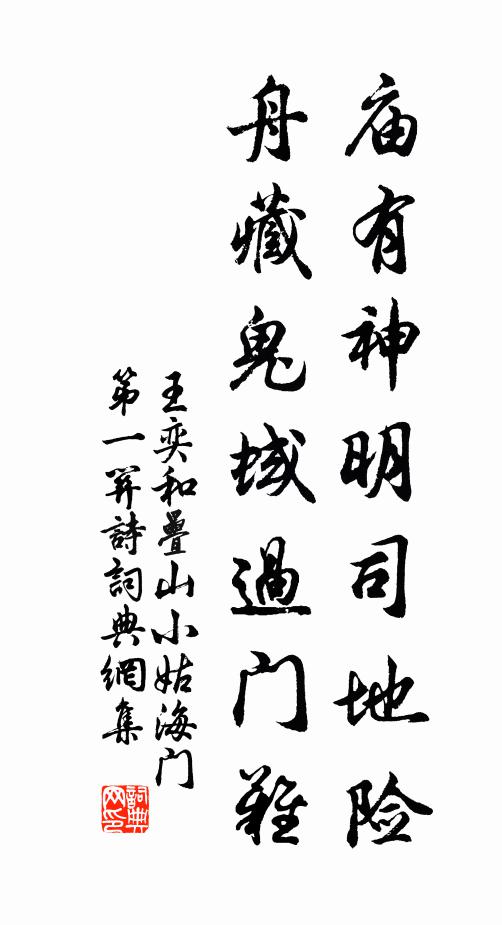 庙有神明司地险
舟藏鬼域過门難
王奕和疊山小姑海门
第一羿詩詞典網集
詞典网印